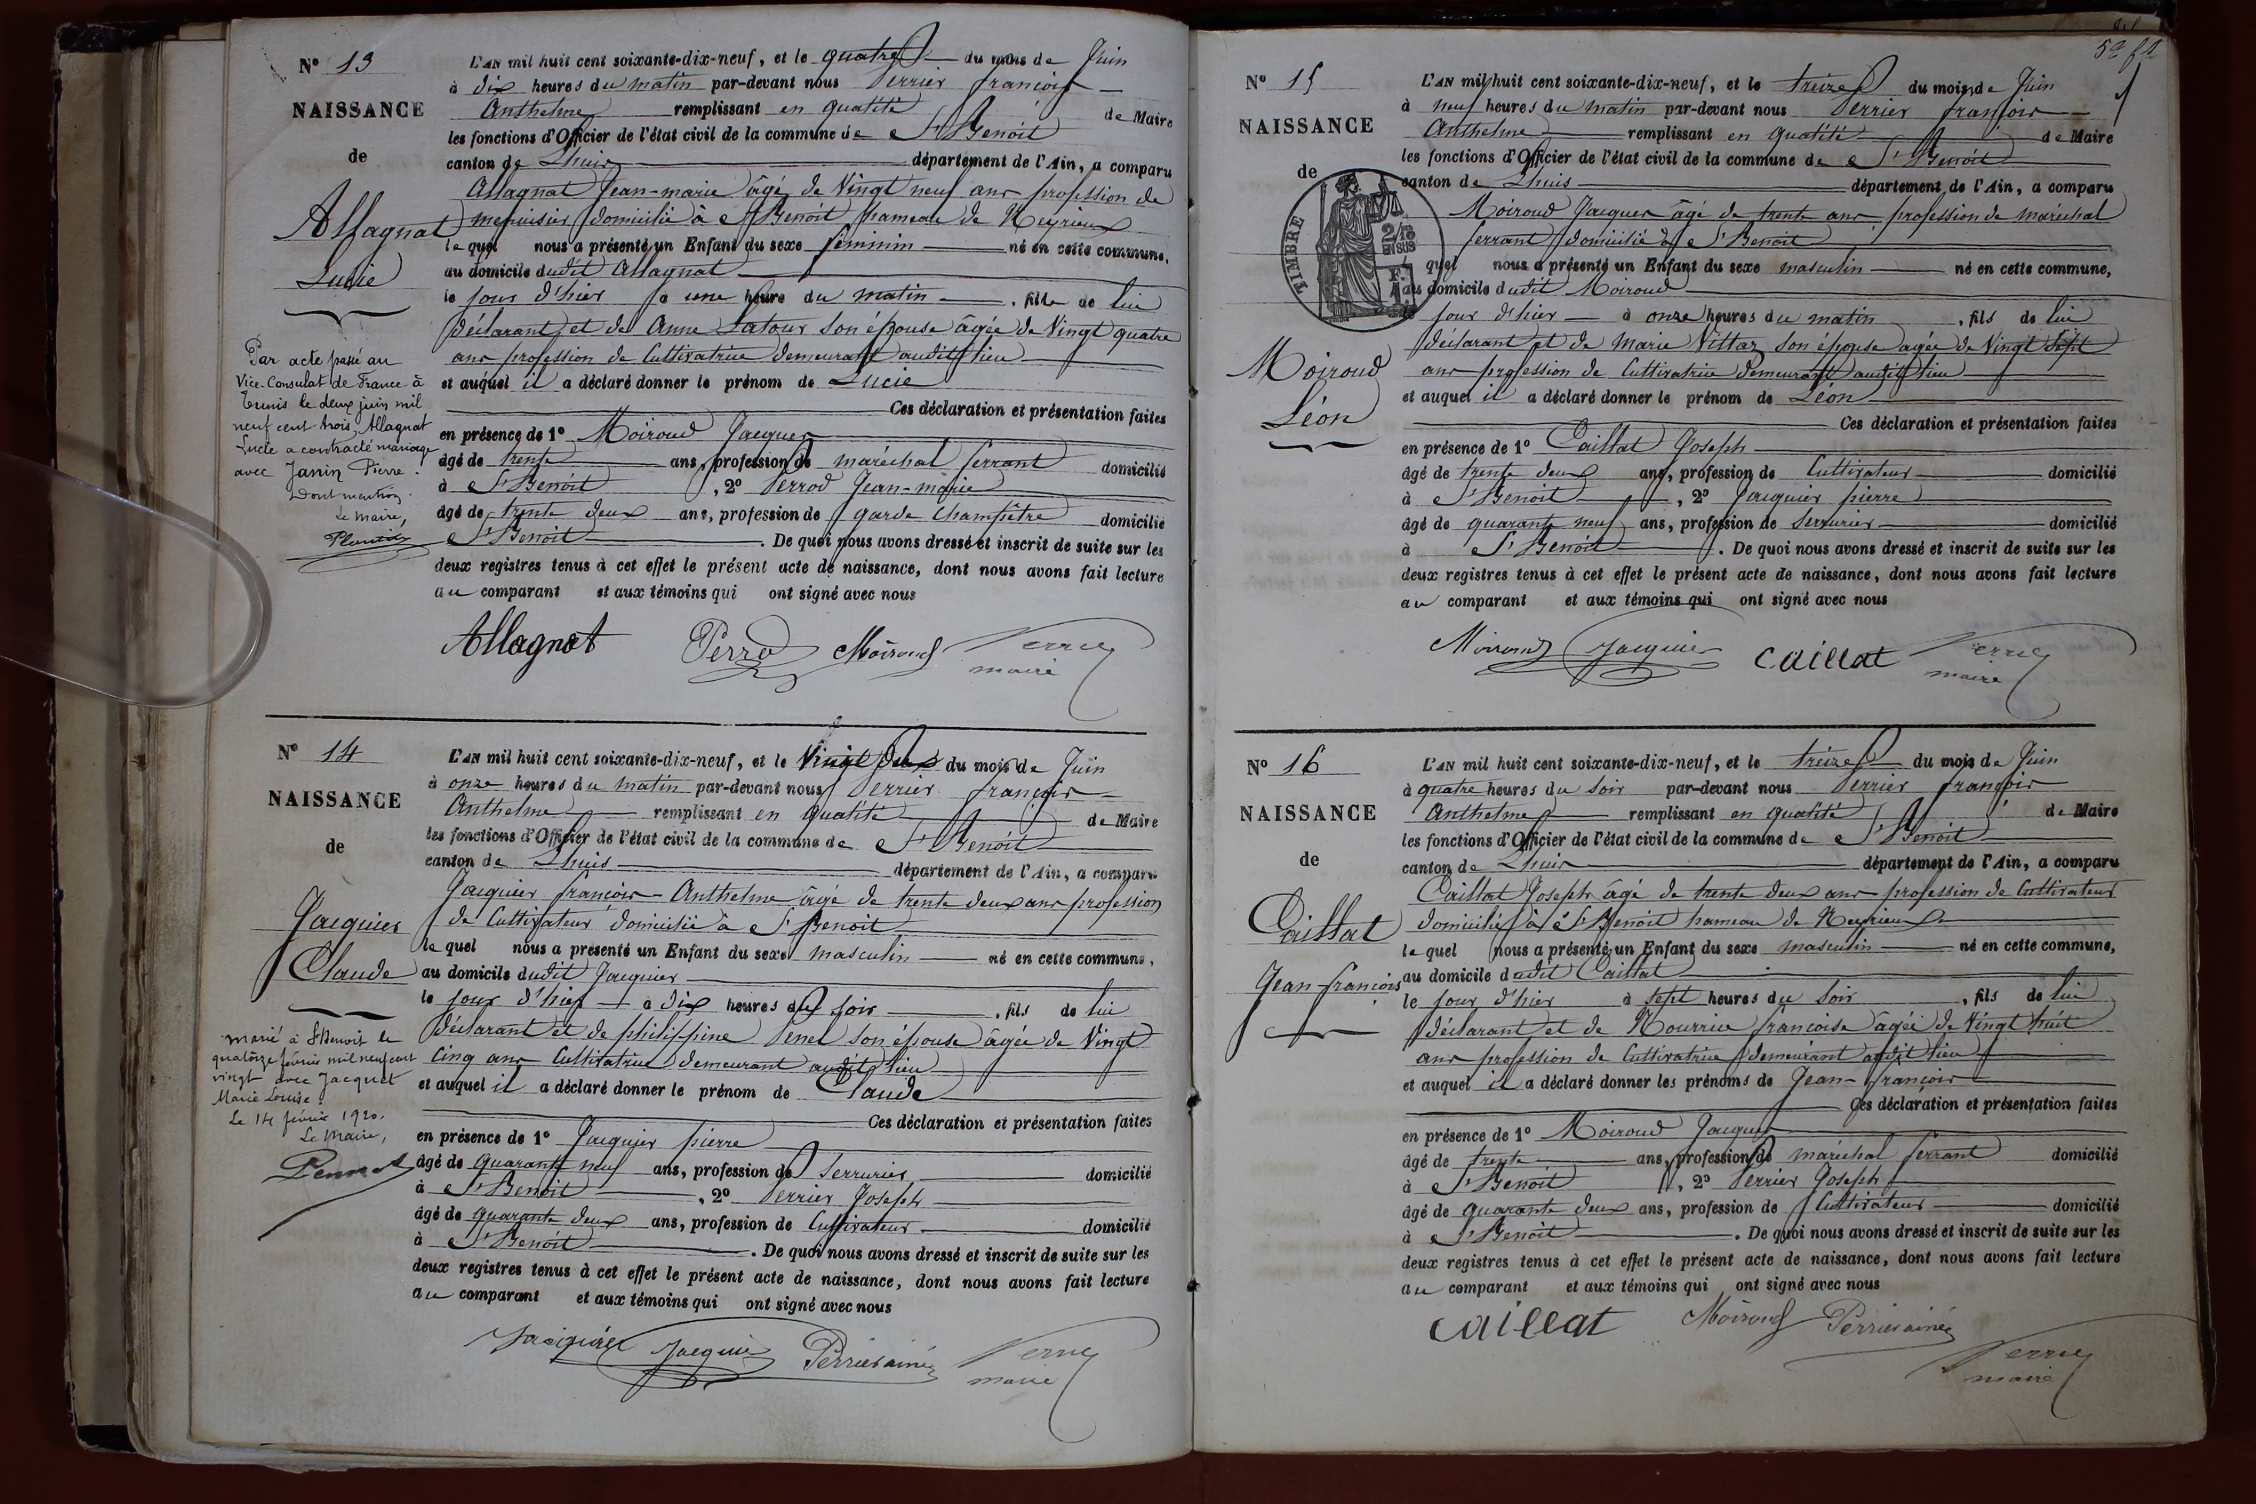 Nº 13
NAISSANCE
de
Allagnat
Lucie
Par acte passé au
Vice-Consulat de France à
Tunis le deux juin mil
neuf cent trois, Allagnat
Lucie a contracté mariage
avec Janin Pierre.
Dont mention.
Le Maire,
L'AN mil huit cent soixante-dix-neuf, et le quatre du mois de Juin
à dix heures du matin par-devant nous Perrier françois
Anthelme remplissant en qualité de Maire
les fonctions d'Officier de l'état civil de la commune de St Benoit
canton de Lhuis département de l'Ain, a comparu
Allagnat Jean-marie âgé de Vingt neuf ans profession de
menuisier domicilié à St Benoit hameau de Neyrieux
le quel nous a présenté un Enfant du sexe féminin né en cette commune,
au domicile dudit Allagnat
le jour d'hier à une heure du matin, fille de lui
déclarant et de Anne Latour son épouse âgée de Vingt quatre
ans profession de Cultivatrice demeurant audit lieu
et auquel il a déclaré donner le prénom de Lucie
Ces déclaration et présentation faites
en présence de 1º Moiroud Jacques
âgé de trente ans, profession de maréchal ferrant domicilié
à St Benoit, 2º Perrod Jean-marie
âgé de trente deux ans, profession de garde champêtre domicilié
St Benoit. De quoi nous avons dressé et inscrit de suite sur les
deux registres tenus à cet effet le présent acte de naissance, dont nous avons fait lecture
au comparant et aux témoins qui ont signé avec nous
Allagnat Perrod Moiroud Perrier
maire
Nº 14
NAISSANCE
de
Jacquier
Claude
marié à St Benoit le
quatorze février mil neuf cent
vingt avec Jacquet
Marie Louise.
Le 14 février 1920.
Le Maire,
L'AN mil huit cent soixante-dix-neuf, et le Vingt deux du mois de Juin
à onze heures du matin par-devant nous Perrier françois
Anthelme remplissant en qualité de Maire
les fonctions d'Officier de l'état civil de la commune de St Benoit
canton de Lhuis département de l'Ain, a comparu
Jacquier françois-Anthelme âgé de trente deux ans profession
de Cultivateur domicilié à St Benoit
le quel nous a présenté un Enfant du sexe masculin né en cette commune,
au domicile dudit Jacquier
le jour d'hier à dix heures du soir, fils de lui
déclarant et de philippine Penel son épouse âgée de Vingt
Cinq ans Cultivatrice demeurant audit lieu
et auquel il a déclaré donner le prénom de Claude
Ces déclaration et présentation faites
en présence de 1º Jacquier pierre
âgé de quarante neuf ans, profession de Serrurier domicilié
à St Benoit, 2º Perrier Joseph
âgé de quarante deux ans, profession de Cultivateur domicilié
à St Benoit. De quoi nous avons dressé et inscrit de suite sur les
deux registres tenus à cet effet le présent acte de naissance, dont nous avons fait lecture
au comparant et aux témoins qui ont signé avec nous
Jacquier Jacquier Perrier ainé Perrier
maire
Nº 15
NAISSANCE
de
TIMBRE
2/10
EN SUS
Moiroud
Léon
L'AN mil huit cent soixante-dix-neuf, et le treize du mois de Juin
à neuf heures du matin par-devant nous Perrier françois
Anthelme remplissant en qualité de Maire
les fonctions d'Officier de l'état civil de la commune de St Benoit
canton de Lhuis département de l'Ain, a comparu
Moiroud Jacques âgé de trente ans profession de maréchal
ferrant domicilié à St Benoit
quel nous a présenté un Enfant du sexe masculin né en cette commune,
au domicile dudit Moiroud
jour d'hier à onze heures du matin, fils de lui
déclarant et de Marie Vittaz son épouse agée de Vingt Sept
ans profession de Cultivatrice demeurant audit lieu
et auquel il a déclaré donner le prénom de Léon
Ces déclaration et présentation faites
en présence de 1º Caillat Joseph
âgé de trente deux ans, profession de Cultivateur domicilié
à St Benoit, 2º Jacquier pierre
âgé de quarante neuf ans, profession de Serrurier domicilié
à St Benoit. De quoi nous avons dressé et inscrit de suite sur les
deux registres tenus à cet effet le présent acte de naissance, dont nous avons fait lecture
au comparant et aux témoins qui ont signé avec nous
Moiroud Jacquier Caillat Perrier
maire
Nº 16
NAISSANCE
de
Caillat
Jean françois
L'AN mil huit cent soixante-dix-neuf, et le treize du mois de Juin
à quatre heures du soir par-devant nous Perrier françois
Anthelme remplissant en qualité de Maire
les fonctions d'Officier de l'état civil de la commune de St Benoit
canton de Lhuis département de l'Ain, a comparu
Caillat Joseph âgé de trente deux ans profession de Cultivateur
domicilié à St Benoit hameau de Neyrieux
le quel nous a présenté un Enfant du sexe masculin né en cette commune,
au domicile dudit Caillat
le jour d'hier à sept heures du soir, fils de lui
déclarant et de Nourrice françoise âgée de Vingt huit
ans profession de Cultivatrice demeurant audit lieu
et auquel il a déclaré donner les prénoms de Jean-françois
Ces déclaration et présentation faites
en présence de 1º Moiroud Jacques
âgé de trente ans, profession de maréchal ferrant domicilié
à St Benoit, 2º Perrier Joseph
âgé de quarante deux ans, profession de Cultivateur domicilié
à St Benoit. De quoi nous avons dressé et inscrit de suite sur les
deux registres tenus à cet effet le présent acte de naissance, dont nous avons fait lecture
au comparant et aux témoins qui ont signé avec nous
Caillat Moiroud Perrier ainé
Perrier
maire